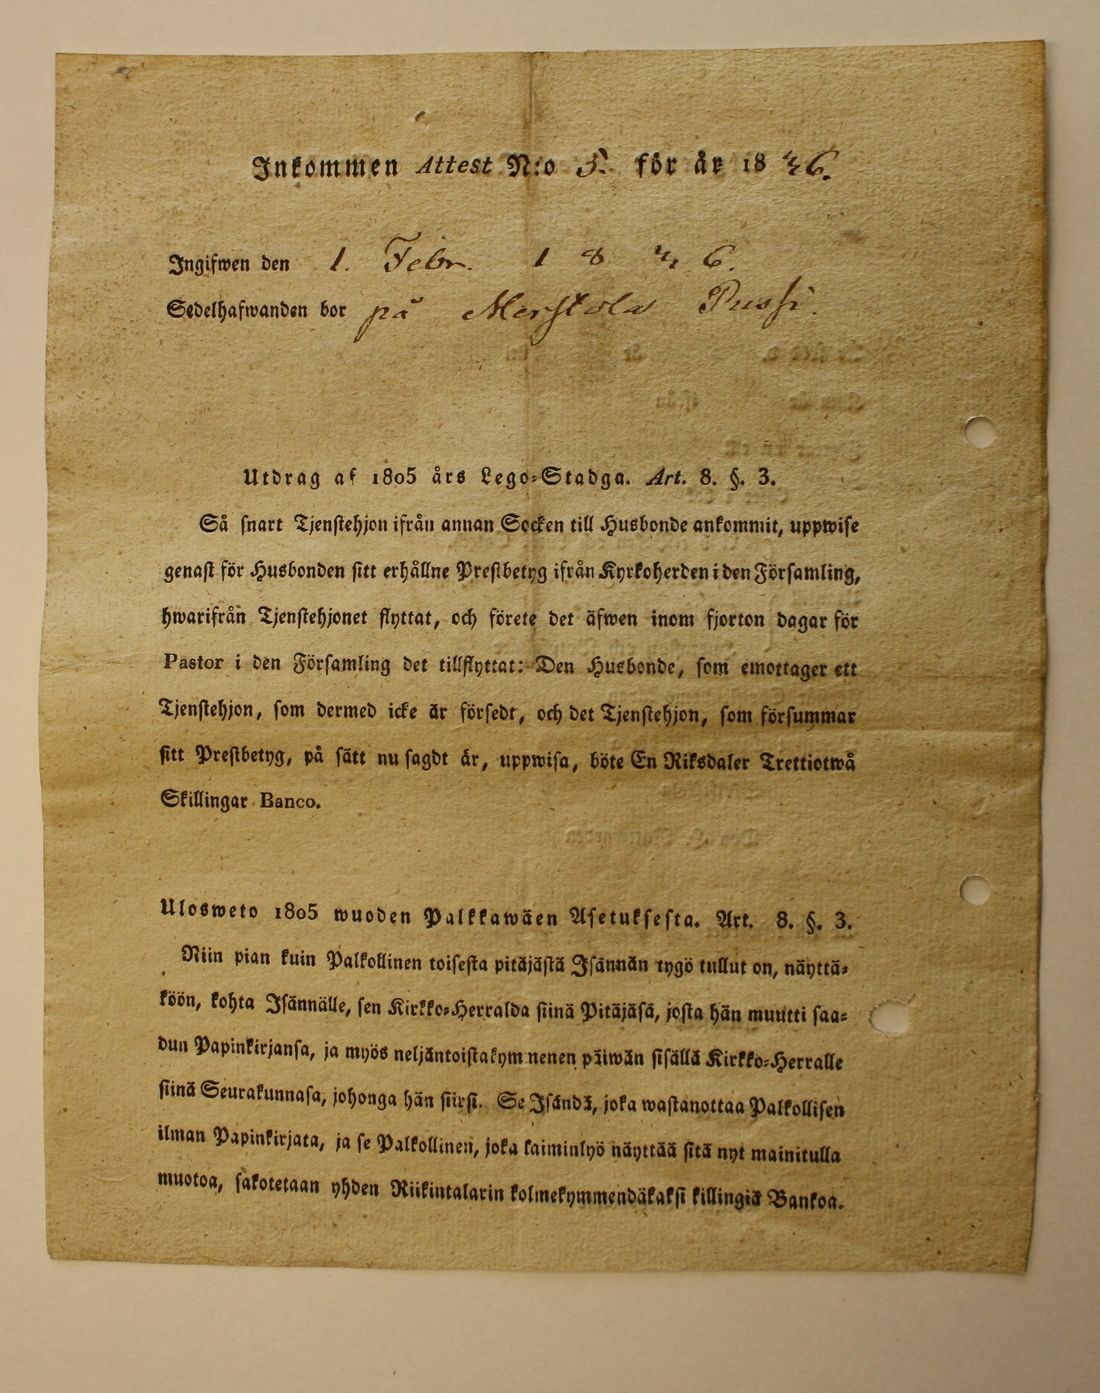 Inkommen Attest N:o 5. för år 1846.
Ingifwen den 1. Febr. 1846.
Sedelhafwanden bor på Merstola Pussi.
Utdrag af 1805 års Lego-Stadga. Art. 8. §. 3.
Så snart Tjenstehjon ifrån annan Socken till Husbonde ankommit, uppwise
genast för Husbonden sitt erhållne Prestbetyg ifrån Kyrkoherden i den Församling,
hwarifrån Tjenstehjonet flyttat, och förete det äfwen inom fjorton dagar för
Pastor i den Församling det tillflyttat: Den Husbonde, som emottager ett
Tjenstehjon, som dermed icke är försedt, och det Tjenstehjon, som försummar
sitt Prestbetyg, på sätt nu sagdt är, uppwisa, böte En Riksdaler Trettiotwå
Skillingar Banco.
Ulosweto 1805 wuoden Palkkawäen Asetuksesta. Art. 8. §. 3.
Niin pian kuin Palkollinen toisesta pitäjästä Isännän tygö tullut on, näyttä-
köön, kohta Isännälle, sen Kirkko-Herralda siinä Pitäjäsä, josta hän muutti saa-
dun Papinkirjansa, ja myös neljäntoistakymmenen päiwän sisällä Kirkko-Herralle
siinä Seurakunnasa, johonga hän siirsi. Se Isändä, joka wastanottaa Palkollisen
ilman Papinkirjata, ja se Palkollinen, joka laiminlyö näyttää sitä nyt mainitulla
muotoa, sakotetaan yhden Riikintalarin kolmekymmendäkaksi killingiä Bankoa.